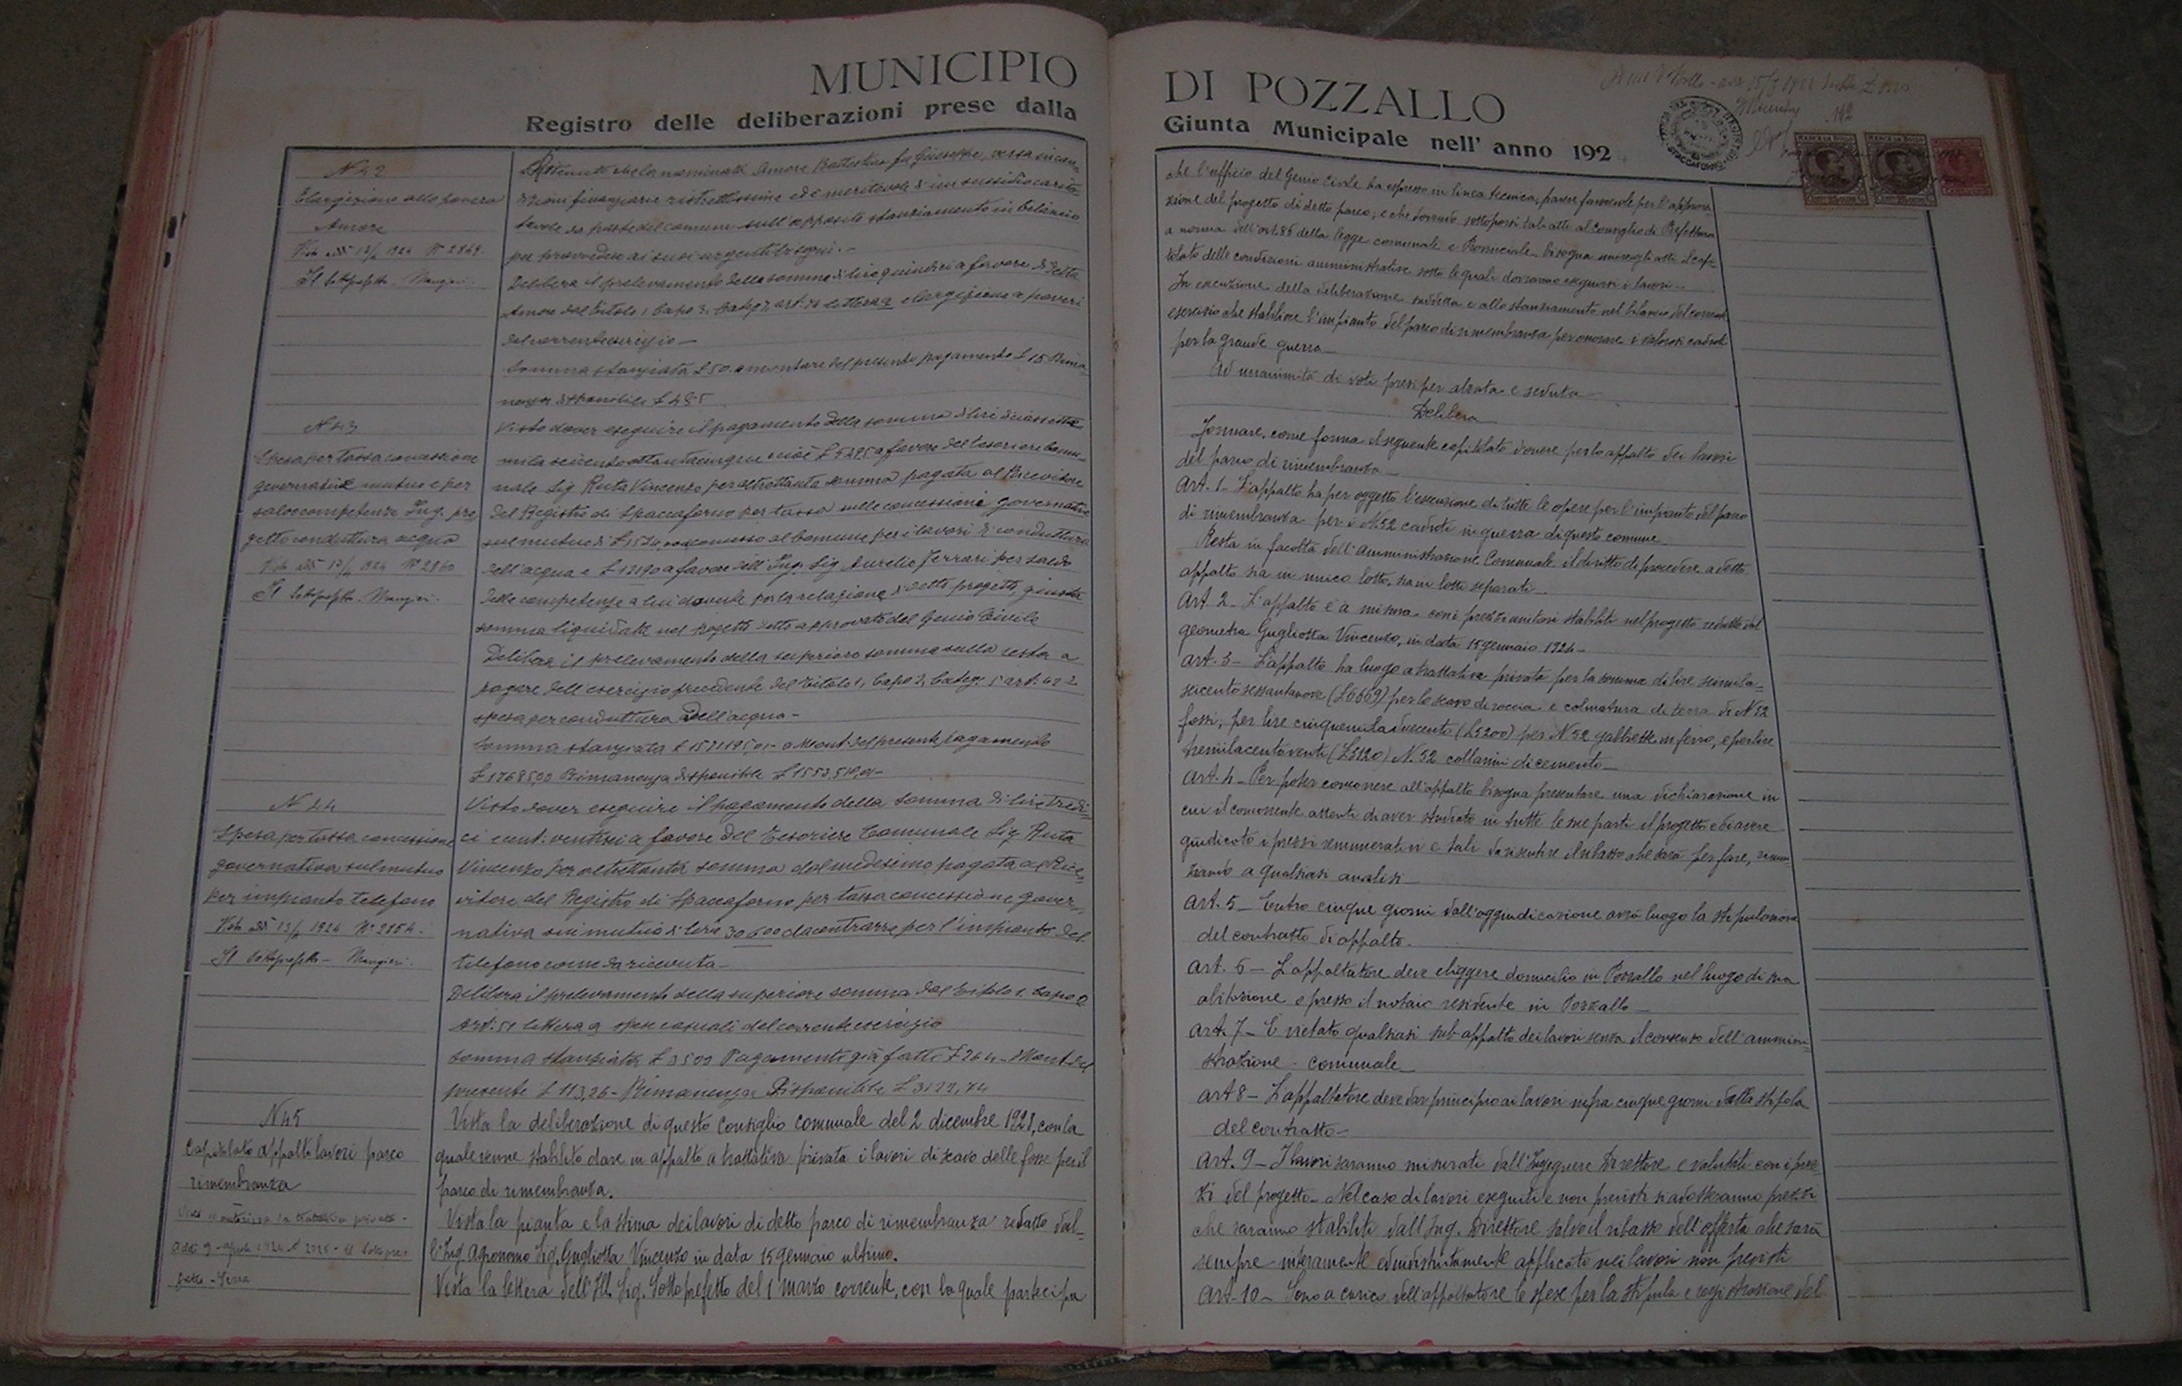 MUNICIPIO
Registro delle deliberazioni prese dalla
N 42
Elargizione alla povera
Amore
Visto addì 13/ 1924 N° 2869.
Il Sottoprefetto
Ritenuto che la nominata Amore Battistina fu Giuseppe, versa in con-
dizioni finanziarie ristrettissime ed è meritevole d'un sussidio carita-
tevole da parte del comune sull'apposito stanziamento in bilancio
per provvedere ai suoi urgenti bisogni.-
Delibera il prelevamento della somma di lire quindici a favore di detta
Amore dal titolo 1 Capo 3, Categ. art. lettera a elargizione a poveri
del corrente esercizio-
Somma stanziata £ 50. ammontare del presente pagamento £ 15 Rima-
nenza disponibile £
N 43
Spesa per tassa concessione
governativa mutuo e per
saldo competenze Ing. pro
getto conduttura acqua
Visto addì 13/ 1924 N° 2860
Il Sottoprefetto
Visto dover eseguire il pagamento della somma di lire diciassette
mila seicento ottantacinque cioè £ 5495 a favore del tesoriere comu-
nale Sig. Ruta Vincenzo per altrettanta somma pagata al Ricevitore
del Registro di Spaccaforno per tassa sulle concessioni governative
sul mutuo di £ concesso al Comune per i lavori di conduttura
dell'acqua e £ 12190 a favore dell'Ing. Sig. Aurelio Ferrari per saldo
delle competenze a lui dovute per la relazione di detto progetto, giusta
somma liquidata nel progetto detto approvato dal Genio Civile
Delibera il prelevamento della superiore somma sulla resta a
pagare dell'esercizio precedente dal titolo 1, Capo 2, Categ. 5 art. 42
spesa per conduttura dell'acqua-
Somma stanziata £ Amont. del presente pagamento
£ 17685,00 Rimanenza disponibile £
N 44
Spesa per tassa concessione
governativa sul mutuo
per impianto telefono
Visto addì 13/ 1924 N° 2854.
Il Sottoprefetto
Visto dover eseguire il pagamento della somma di lire tredi-
ci cent. ventisei a favore del Tesoriere Comunale Sig. Ruta
Vincenzo per altrettanta somma dal medesimo pagata al Rice-
vitore del Registro di Spaccaforno per tassa concessione gover-
nativa sui mutuo di lire 30600 da contrarre per l'impianto del
telefono come da ricevuta-
Delibera il prelevamento della superiore somma dal titolo 1, Capo
art. 51 lettera a spese casuali del corrente esercizio
Somma stanziata £ 3500 Pagamenti già fatti £ 264 - Amont. del
presente £ 113,26 - Rimanenza Disponibile £ 3122,74
N 45
Capitolato appalto lavori parco
rimembranza
Visto si autorizza la trattativa privata.
Addì 9 aprile 1924 Il Sottopre-
fetto
Vista la deliberazione di questo Consiglio comunale del 2 dicembre 1923, con la
quale venne stabilito dare in appalto a trattativa privata i lavori di scavo delle fosse per il
parco di rimembranza.
Vista la pianta e la stima dei lavori di detto parco di rimembranza redatto dal-
l'Ing. Agronomo Sig. Gugliotta Vincenzo in data 15 gennaio ultimo.
Vista la lettera dell'Ill. Sig. Sottoprefetto del 1 marzo corrente, con la quale partecipa
DI POZZALLO
Giunta Municipale nell' anno 192
che l'ufficio del Genio Civile ha espresso in linea tecnica, parere favorevole per l'approva-
zione del progetto di detto parco, e che dovendo sottoporsi tali atti al Consiglio di Prefettura
a norma dell'art. 86 della legge comunale e Provinciale, bisogna unire agli atti il capi-
tolato delle condizioni amministrative sotto le quali dovranno eseguirsi i lavori.-
In esecuzione della deliberazione suddetta e allo stanziamento nel bilancio del corrente
esercizio che stabilisce l'impianto del parco di rimembranza per onorare i valorosi caduti
per la grande guerra-
Ad unanimità di voti presi per alzata e seduta
Delibera
Formare, come forma il seguente capitolato d'onere per lo appalto dei lavori
del parco di rimembranza-
Art. 1- L'appalto ha per oggetto l'esecuzione di tutte le opere per l'impianto del parco
di rimembranza per i N. 52 caduti in guerra di questo comune-
Resta in facoltà dell'Amministrazione Comunale il diritto di procedere a detto
appalto sia in unico lotto, sia in lotti separati-
Art. 2- L'appalto è a misura coi prezzi unitari stabiliti nel progetto redatto dal
geometra Gugliotta Vincenzo, in data 15 gennaio 1924-
Art. 3- L'appalto ha luogo a trattativa privata per la somma di lire seimila-
seicento sessantanove (£ 6669) per lo scavo di roccia e colmatura di terra di N 52
fossi, per lire cinquemiladuecento (£ 5200) per N 52 gabbiette in ferro, e per lire
tremilacentoventi (£ 3120) N. 52 collarini di cemento-
Art. 4- Per poter concorrere all'appalto bisogna presentare una dichiarazione in
cui il concorrente attesti di aver studiato in tutte le sue parti il progetto e di avere
giudicato i prezzi remunerativi e tali da consentire il ribasso che sarà per fare, rinun
ziando a qualsiasi analisi-
Art. 5- Entro cinque giorni dall'aggiudicazione avrà luogo la stipulazione
del contratto di appalto.
Art. 6- L'appaltatore deve eliggere domicilio in Pozzallo nel luogo di sua
abitazione o presso il notaio residente in Pozzallo-
Art. 7- È vietato qualsiasi sub-appalto dei lavori senza il consenso dell'ammini-
strazione comunale-
Art 8- L'appaltatore deve dar principio ai lavori infra cinque giorni dalla stipola
del contratto-
Art. 9- I lavori saranno misurati dall'Ingegnere Direttore e valutati con i prez
zi del progetto- Nel caso di lavori eseguiti e non previsti si adotteranno prezzi
che saranno stabiliti dall'Ing. Direttore salvo il ribasso dell'offerta che sarà
sempre interamente ed indistintamente applicato nei lavori non previsti
Art. 10- Sono a carico dell'appaltatore le spese per la stipula e registrazione del